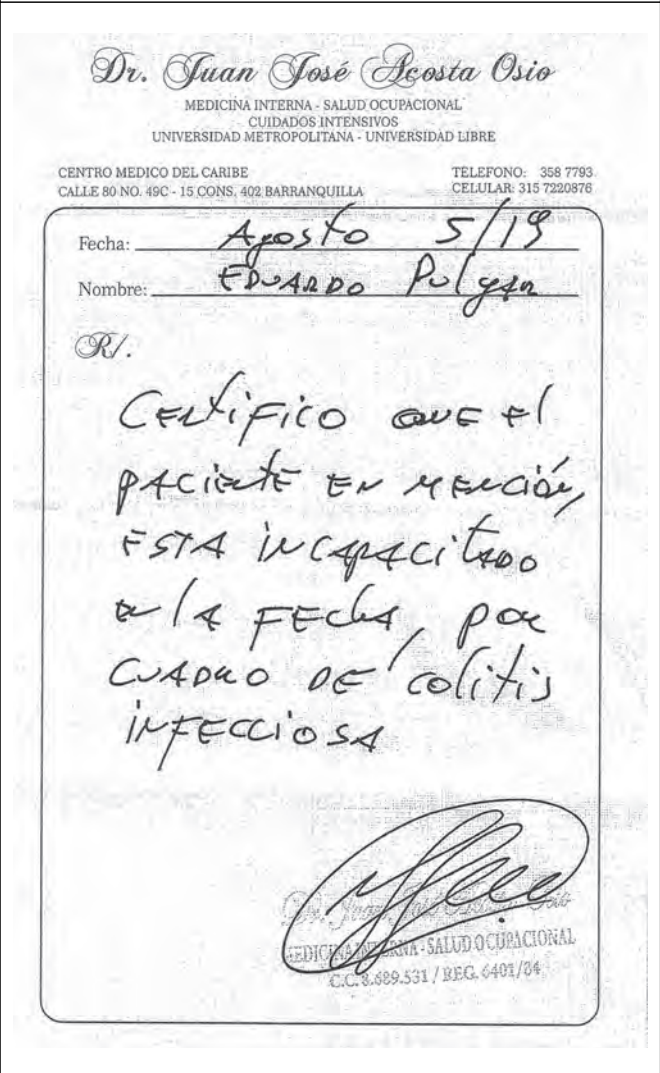 Dr. Juan José Acosta Osio
MEDICINA INTERNA - SALUD OCUPACIONAL
CUIDADOS INTENSIVOS
UNIVERSIDAD METROPOLITANA - UNIVERSIDAD LIBRE
CENTRO MEDICO DEL CARIBE
CALLE 80 NO. 49C - 15 CONS. 402 BARRANQUILLA
TELEFONO: 358 7793
CELULAR: 315 7220876
Fecha: Agosto 5/19
Nombre: EDUARDO Pulgar
R/.
CERTIFICO QUE El
PACIENTE EN MENCIÓN,
ESTA INCAPACITADO
EN lA FECHA, POR
CUADRO DE colitis
INFECCIOSA
Dr. Juan José Acosta Osio
MEDICINA INTERNA - SALUD OCUPACIONAL
C.C. 8.689.531 / REG. 6401/84